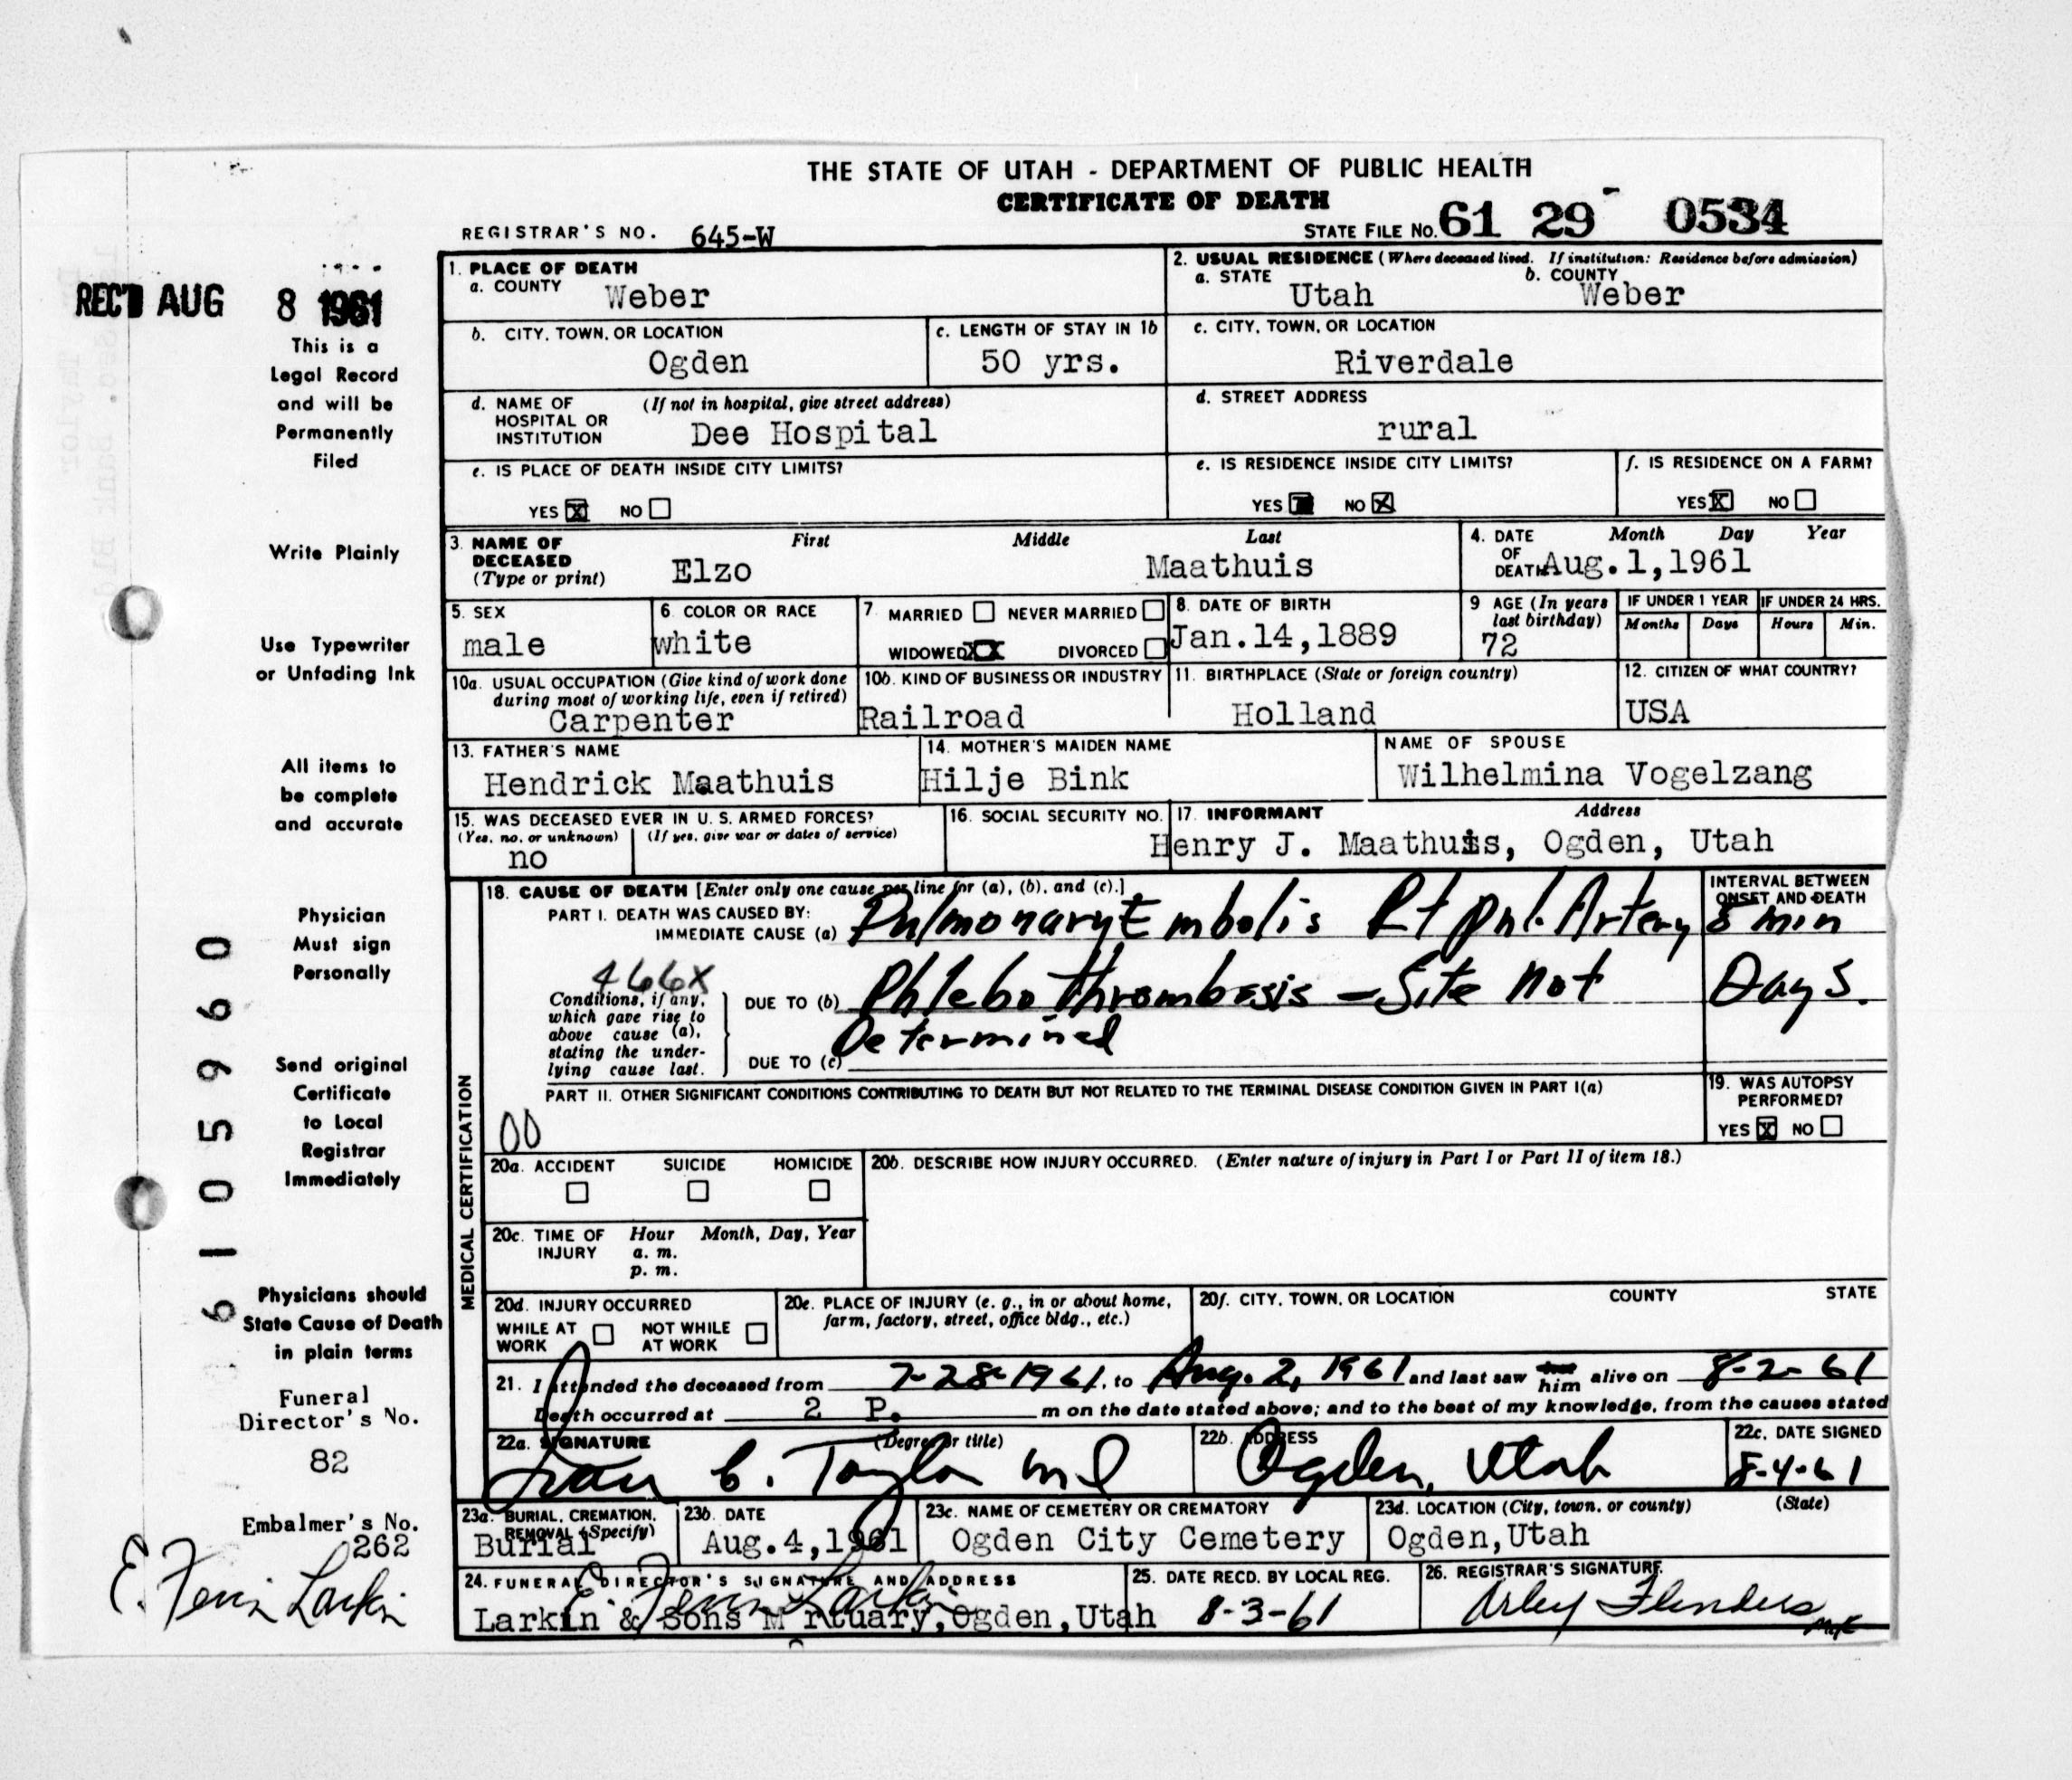 THE STATE OF UTAH - DEPARTMENT OF PUBLIC HEALTH
CERTIFICATE OF DEATH
REGISTRAR'S NO. 645-W
STATE FILE NO. 61 29 0534
REC'D AUG 8 1961
This is a
Legal Record
and will be
Permanently
Filed
Write Plainly
Use Typewriter
or Unfading Ink
All items to
be complete
and accurate
Physician
Must sign
Personally
Send original
Certificate
to Local
Registrar
Immediately
Physicians should
State Cause of Death
in plain terms
Funeral
Director's No.
82
Embalmer's No.
262
E. Ferrin Larkin
6105960
1. PLACE OF DEATH
a. COUNTY Weber
2. USUAL RESIDENCE (Where deceased lived. If institution: Residence before admission)
a. STATE Utah b. COUNTY Weber
b. CITY, TOWN, OR LOCATION Ogden
c. LENGTH OF STAY IN 1b 50 yrs.
c. CITY, TOWN, OR LOCATION Riverdale
d. NAME OF HOSPITAL OR INSTITUTION (If not in hospital, give street address) Dee Hospital
d. STREET ADDRESS rural
e. IS PLACE OF DEATH INSIDE CITY LIMITS?
YES X NO
e. IS RESIDENCE INSIDE CITY LIMITS?
YES NO X
f. IS RESIDENCE ON A FARM?
YES X NO
3. NAME OF DECEASED (Type or print) First Middle Last
Elzo Maathuis
4. DATE OF DEATH Month Day Year
Aug.1,1961
5. SEX male
6. COLOR OR RACE white
7. MARRIED NEVER MARRIED
WIDOWED XX DIVORCED
8. DATE OF BIRTH Jan.14,1889
9 AGE (In years last birthday) 72
IF UNDER 1 YEAR Months Days
IF UNDER 24 HRS. Hours Min.
10a. USUAL OCCUPATION (Give kind of work done during most of working life, even if retired) Carpenter
10b. KIND OF BUSINESS OR INDUSTRY Railroad
11. BIRTHPLACE (State or foreign country) Holland
12. CITIZEN OF WHAT COUNTRY? USA
13. FATHER'S NAME Hendrick Maathuis
14. MOTHER'S MAIDEN NAME Hilje Bink
NAME OF SPOUSE Wilhelmina Vogelzang
15. WAS DECEASED EVER IN U. S. ARMED FORCES?
(Yes, no, or unknown) (If yes, give war or dates of service)
no
16. SOCIAL SECURITY NO.
17. INFORMANT Address
Henry J. Maathuis, Ogden, Utah
MEDICAL CERTIFICATION
18. CAUSE OF DEATH [Enter only one cause per line for (a), (b), and (c).]
INTERVAL BETWEEN ONSET AND DEATH
PART I. DEATH WAS CAUSED BY:
IMMEDIATE CAUSE (a) Pulmonary Embolis Rt pul. Artery 8 min
466X
Conditions, if any, which gave rise to above cause (a), stating the underlying cause last.
DUE TO (b) Phlebothrombosis - Site not Days.
Determined
DUE TO (c)
PART II. OTHER SIGNIFICANT CONDITIONS CONTRIBUTING TO DEATH BUT NOT RELATED TO THE TERMINAL DISEASE CONDITION GIVEN IN PART I(a)
00
19. WAS AUTOPSY PERFORMED?
YES X NO
20a. ACCIDENT SUICIDE HOMICIDE
20b. DESCRIBE HOW INJURY OCCURRED. (Enter nature of injury in Part I or Part II of item 18.)
20c. TIME OF INJURY Hour Month, Day, Year
a. m.
p. m.
20d. INJURY OCCURRED
WHILE AT WORK NOT WHILE AT WORK
20e. PLACE OF INJURY (e. g., in or about home, farm, factory, street, office bldg., etc.)
20f. CITY, TOWN, OR LOCATION COUNTY STATE
21. I attended the deceased from 7-28-1961, to Aug. 2, 1961 and last saw him alive on 8-2-61
Death occurred at 2 P. m on the date stated above; and to the best of my knowledge, from the causes stated
22a. SIGNATURE (Degree or title)
C. Taylor MD
22b. ADDRESS Ogden, Utah
22c. DATE SIGNED 8-4-61
23a. BURIAL, CREMATION, REMOVAL (Specify) Burial
23b. DATE Aug.4,1961
23c. NAME OF CEMETERY OR CREMATORY Ogden City Cemetery
23d. LOCATION (City, town, or county) (State) Ogden,Utah
24. FUNERAL DIRECTOR'S SIGNATURE AND ADDRESS
E. Ferrin Larkin
Larkin & Sons M rtuary,Ogden,Utah
25. DATE RECD. BY LOCAL REG. 8-3-61
26. REGISTRAR'S SIGNATURE
Arley Flinders